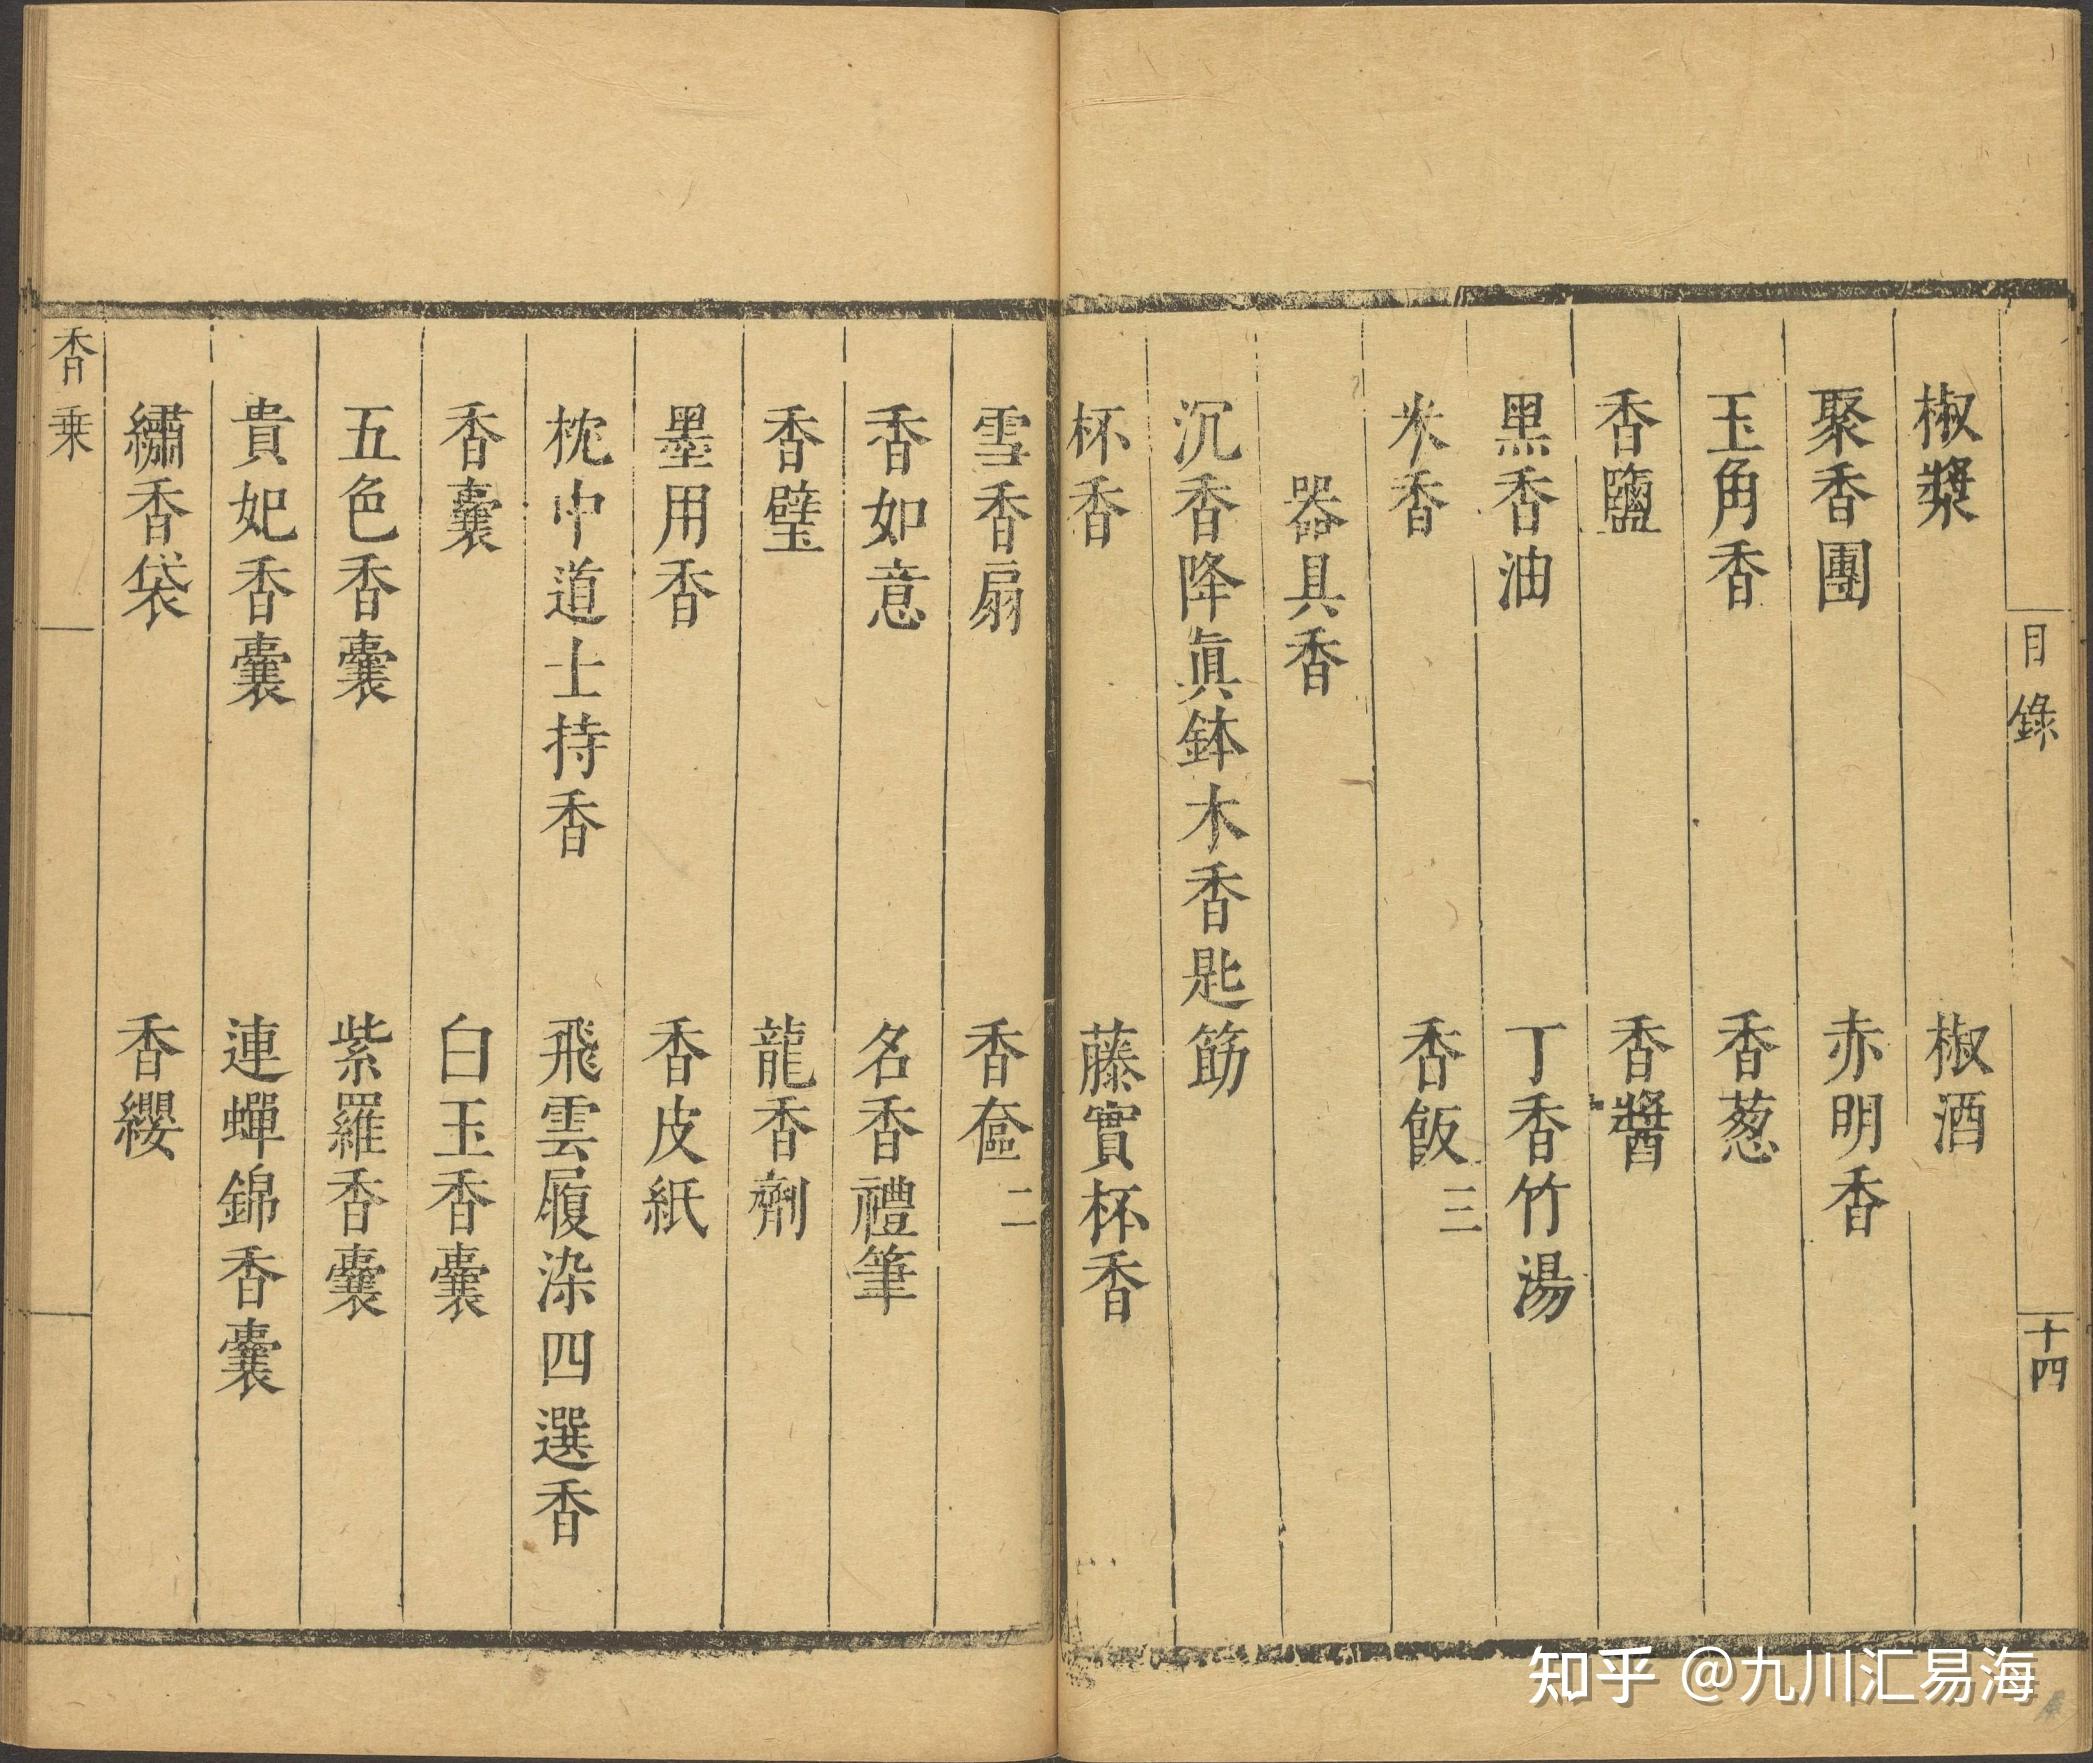 目錄
十四
椒漿 椒酒
聚香團 赤明香
玉角香 香葱
香鹽 香醬
黑香油 丁香竹湯
米香 香飯三
器具香
沉香降眞鉢木香匙筯
杯香 藤實杯香
雪香扇 香奩二
香如意 名香禮筆
香璧 龍香劑
墨用香 香皮紙
枕中道士持香 飛雲履染四選香
香囊 白玉香囊
五色香囊 紫羅香囊
貴妃香囊 連蟬錦香囊
繡香袋 香纓
香乗
知乎 @九川汇易海